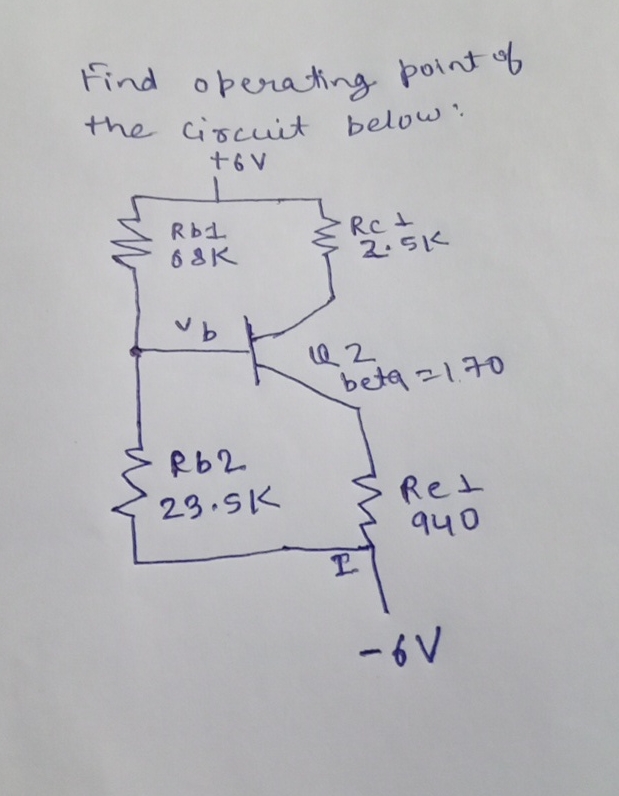 Find operating point of
the circuit below:
+6V
Rb1
68K
Rc1
2.5K
Vb
Q2
beta = 170
Rb2
23.5K
Re1
940
I
-6V